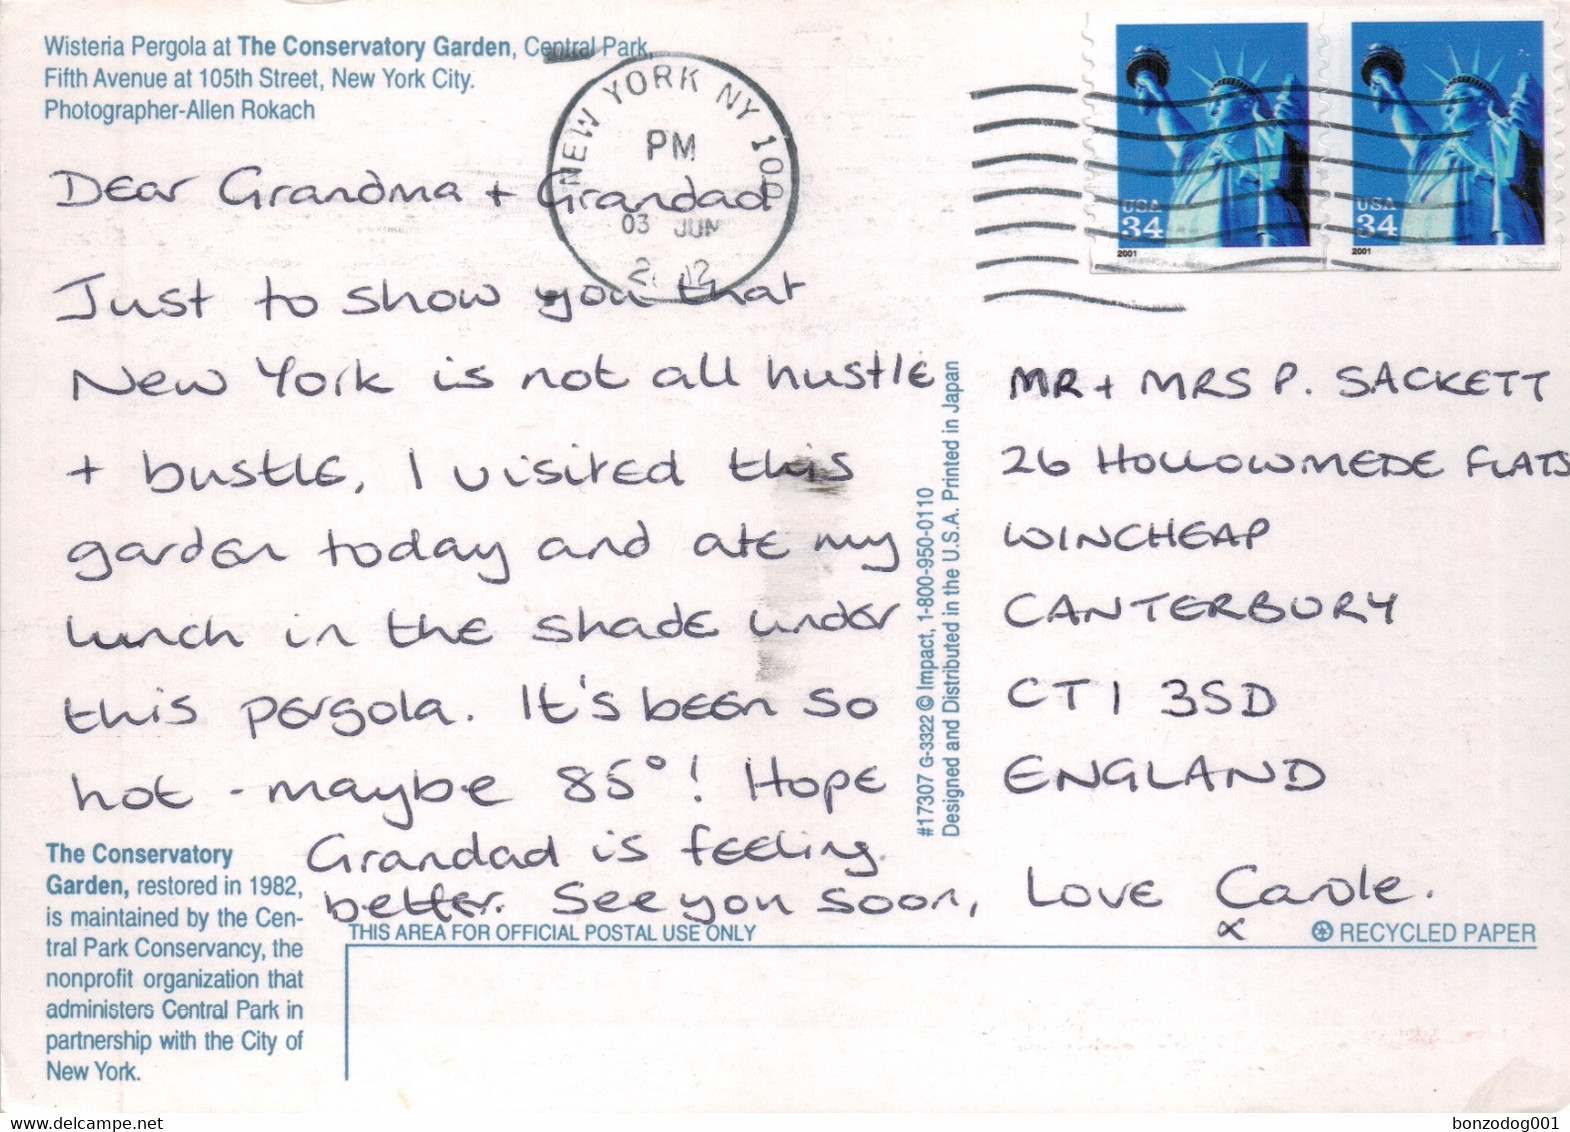 Wisteria Pergola at The Conservatory Garden, Central Park,
Fifth Avenue at 105th Street, New York City.
Photographer-Allen Rokach
NEW YORK NY 100
PM
03 JUN
USA
34
2001
USA
34
2001
Dear Grandma + Grandad
Just to show you that
New York is not all hustle
+ bustle, I visited this
garden today and ate my
lunch in the shade under
this pergola. It's been so
hot - maybe 85°! Hope
Grandad is feeling
better. See you soon, Love Carole.
x
#17307 G-3322 © Impact, 1-800-950-0110
Designed and Distributed in the U.S.A. Printed in Japan
MR + MRS P. SACKETT
26 HOLLOWMEDE FLATS
WINCHEAP
CANTERBURY
CT1 3SD
ENGLAND
The Conservatory
Garden, restored in 1982,
is maintained by the Cen-
tral Park Conservancy, the
nonprofit organization that
administers Central Park in
partnership with the City of
New York.
THIS AREA FOR OFFICIAL POSTAL USE ONLY
RECYCLED PAPER
bonzodog001